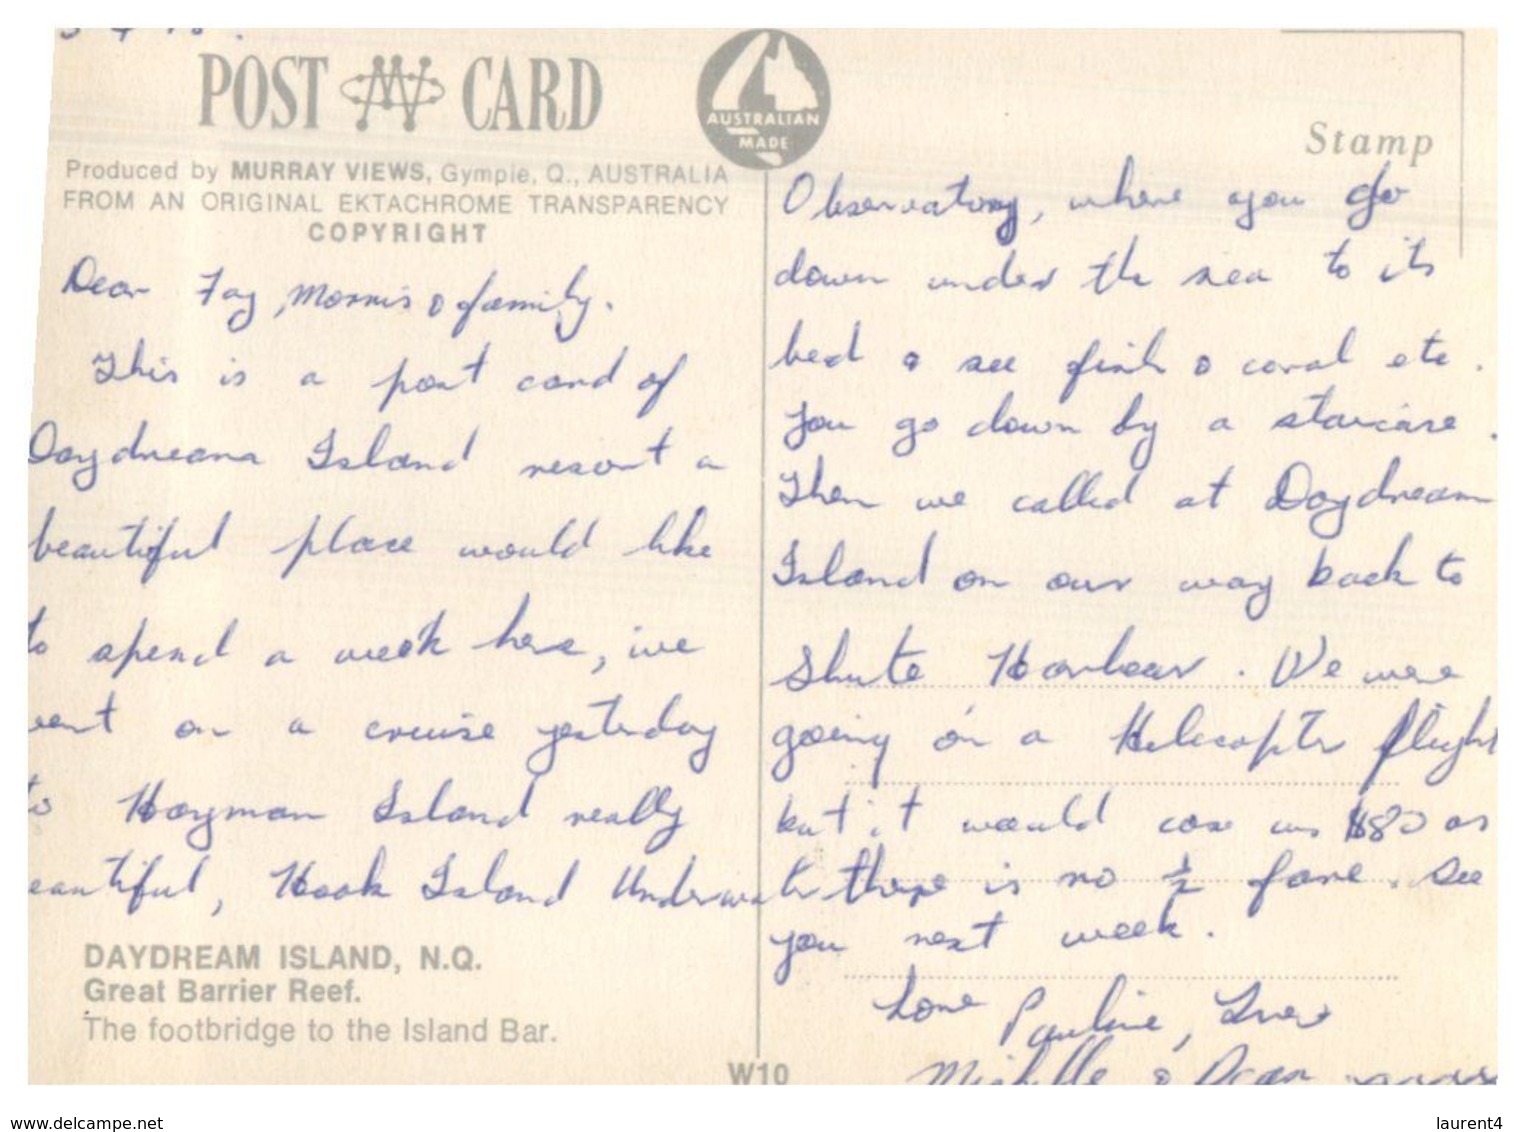 POST CARD
AUSTRALIAN
MADE
Stamp
Produced by MURRAY VIEWS, Gympie, Q., AUSTRALIA
FROM AN ORIGINAL EKTACHROME TRANSPARENCY
COPYRIGHT
Dear Fay, Morris & family.
This is a post card of
Daydream Island resort a
beautiful place would like
to spend a week here, we
went on a cruise yesterday
to Hayman Island really
eautiful, Hook Island Underwater
Observatory, where you go
down under the sea to its
bed & see fish & coral etc.
You go down by a staircase.
Then we called at Daydream
Island on our way back to
Shute Harbour. We were
going on a Helecopter flight
but it would cose us $80 as
there is no ½ fare. See
you next week.
Love Pauline,
Michelle & Dean
DAYDREAM ISLAND, N.Q.
Great Barrier Reef.
The footbridge to the Island Bar.
W10
www.delcampe.net
laurent4